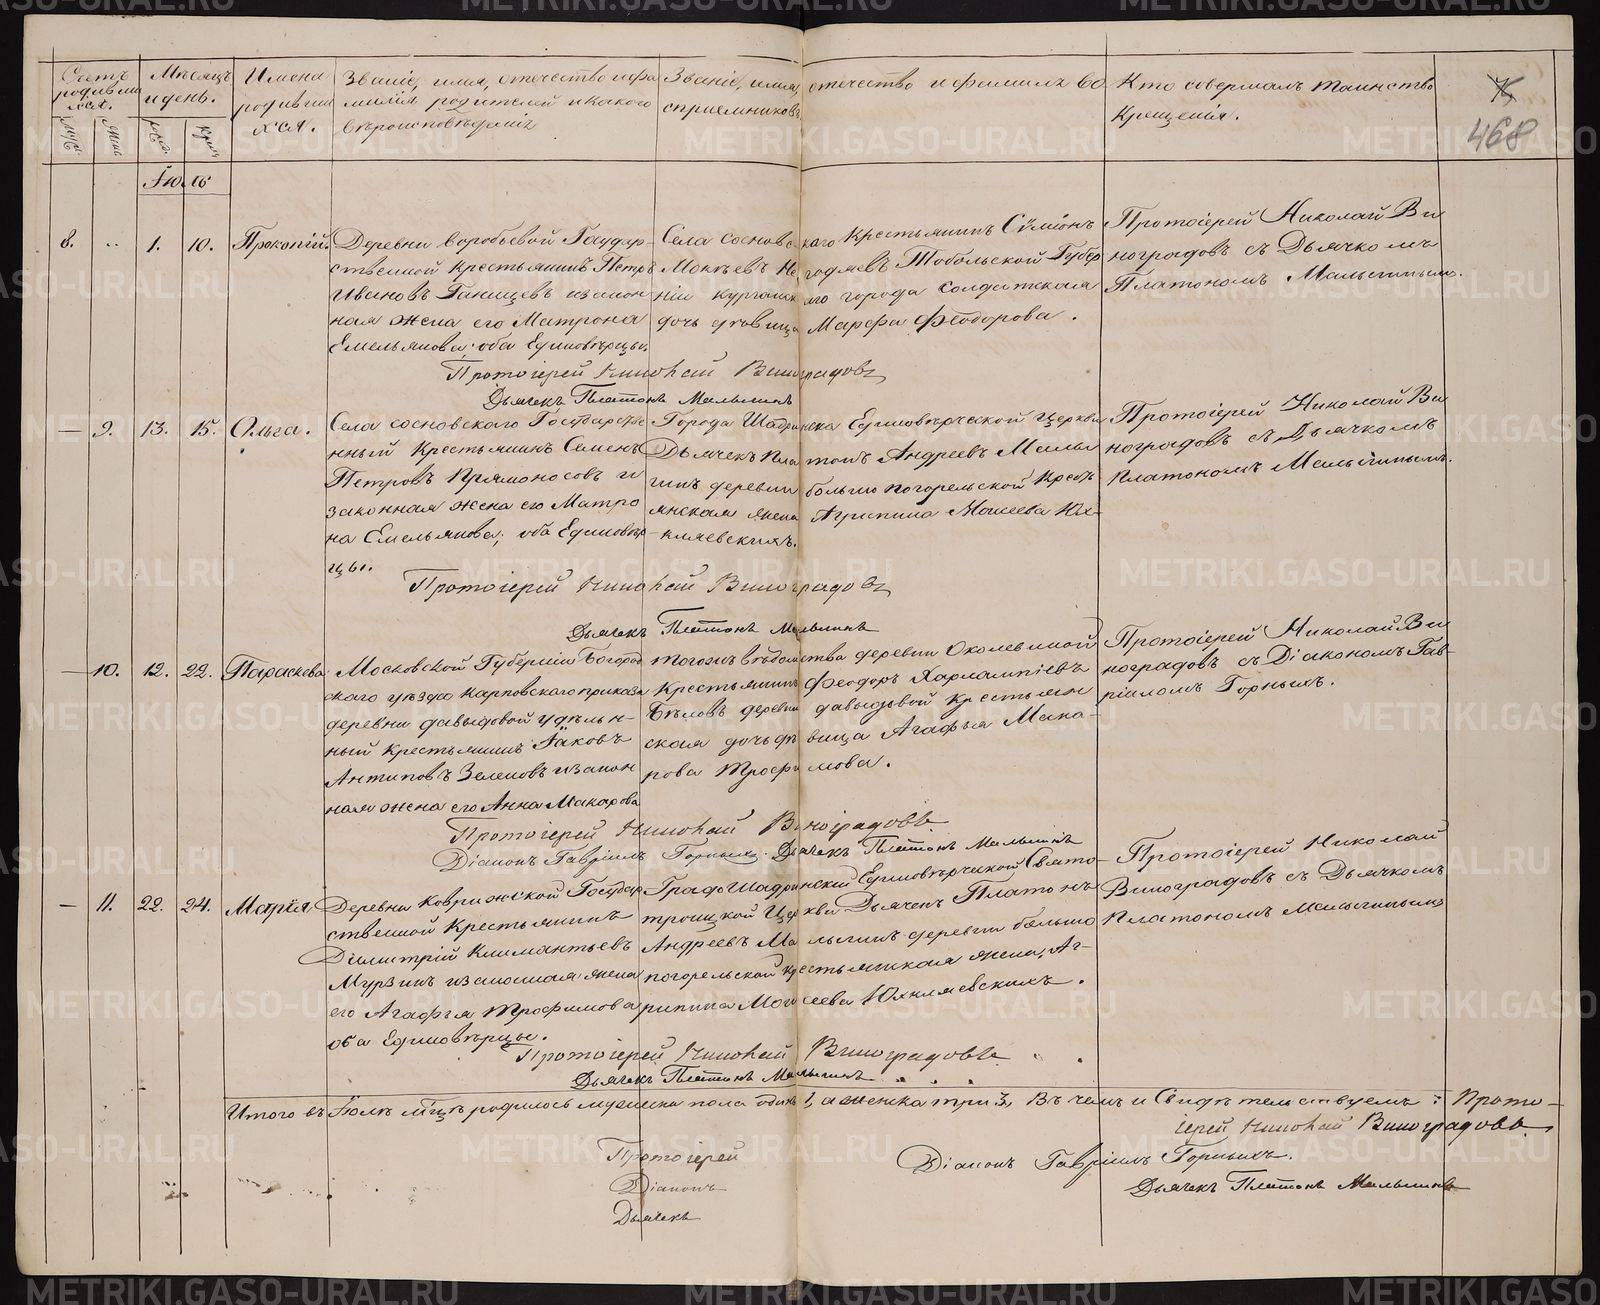 Счетъ родившихся.
Муж.
Жен.
Мѣсяцъ и день.
рожд.
крещ.
Имена родившихся.
Званіе, имя, отечество и фамилія родителей и какого вѣроисповѣданія
Званіе, имя, отечество и фамилія воспріемниковъ
Кто совершалъ таинство крещенія.
468
Іюль
8. „ 1. 10. Прокопій.
Деревни Воробьевой Государ-
ственной крестьянинъ Петръ
Ивановъ Ганищевъ и закон
ная жена его Матрона
Емельянова; оба Единовѣрцы.
Села Сосновскаго крестьянинъ Сѷмеонъ
Мокѣевъ Негодяевъ Тобольской Губер
ніи Курганскаго города солдатская
дочь дѣвица Марфа Феодорова.
Протоіерей Николай Ви
ноградовъ съ Дьячкомъ
Платономъ Малыгинымъ.
Протоіерей Николай Виноградовъ
Дьячекъ Платонъ Малыгинъ
— 9. 13. 15. Ольга.
Села Сосновскаго Государстве
нный крестьянинъ Семенъ
Петровъ Прямоносовъ и
законная жена его Матро
на Емельянова; оба Единовѣр
цы.
Города Шадринска Единовѣрческой церкви
Дьячекъ Платонъ Андреевъ Малы
гинъ деревни большо погорельской крестъ
янская жена Агрипина Моисеева Юх-
няевскихъ.
Протоіерей Николай Ви
ноградовъ съ Дьячкомъ
Платономъ Малыгинымъ.
Протоіерей Николай Виноградовъ
Дьячекъ Платонъ Малыгинъ
— 10. 12. 22. Параскева
Московской Губерніи Богород
скаго уѣзда Карповскаго приказа
деревни давыдовой удѣльн-
ный крестьянинъ Іаковъ
Антиповъ Зеленовъ и закон
ная жена его Анна Макарова
тогожъ вѣдомства деревни Околевиной
Крестьянинъ Феодоръ Харлампіевъ
Бѣловъ деревни давыдовой крестьян
ская дочь дѣвица Агафья Мака-
рова Трофимова.
Протоіерей Николай Ви
ноградовъ съ Діакономъ Гав-
ріиломъ Горныхъ.
Протоіерей Николай Виноградовъ
Діаконъ Гавріилъ Горныхъ. Дьячекъ Платонъ Малыгинъ
— 11. 22. 24. Марія
Деревни Коврижской Государ
ственной Крестьянинъ
Димитрій Климантьевъ
Мурзинъ и законная жена
его Агафья Трофимова
оба Единовѣрцы.
Градо Шадринской Единовѣрческой Свято-
троицкой Церкви Дьячекъ Платонъ
Андреевъ Малыгинъ деревни большо
погорельской крестьянская жена, Аг-
рипина Моисеева Юхняевскихъ.
Протоіерей Николай
Виноградовъ съ Дьячкомъ
Платономъ Малыгинымъ
Протоіерей Николай Виноградовъ
Дьячекъ Платонъ Малыгинъ
Итого въ Іюлѣ м͠цѣ родилось мужеска пола одинъ 1, а женска три 3, Въ чемъ и Свидѣтельствуемъ: Прото-
іерей Николай Виноградовъ
Протоіерей
Діаконъ Гавріилъ Горныхъ.
Діаконъ
Дьячекъ Платонъ Малыгинъ
Дьячекъ
METRIKI.GASO-URAL.RU